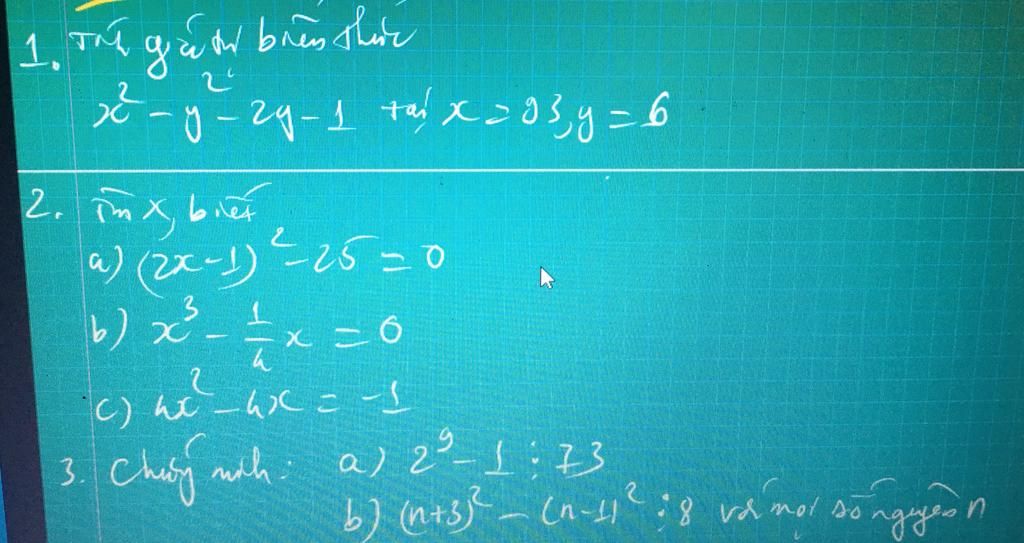 1. Tính giá trị biểu thức
x² - y² - 2y - 1 tại x = 93, y = 6
2. Tìm x, biết
a) (2x-1)² - 25 = 0
b) x³ - 1/4 x = 0
c) 4x² - 4x = -1
3. Chứng minh: a) 2⁹ - 1 ⋮ 73
b) (n+3)² - (n-1)² ⋮ 8 với mọi số nguyên n